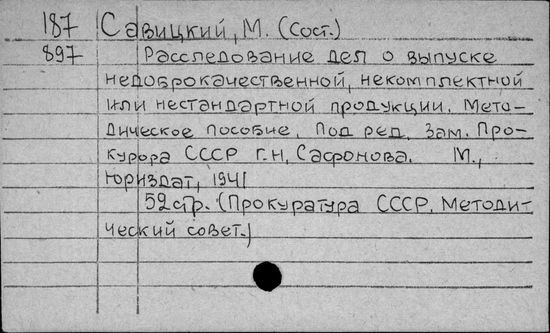 187 Савицкий, М. (Сост.)
897 Расследование дел о выпуске
недоброкачественной, некомплектной
или нестандартной продукции. Мето-
дическое пособие. Под ред. Зам. Про-
курора СССР Г.Н. Сафонова. М.,
Юриздат, 1941
52 стр. (Прокуратура СССР. Методи-
ческий совет.)